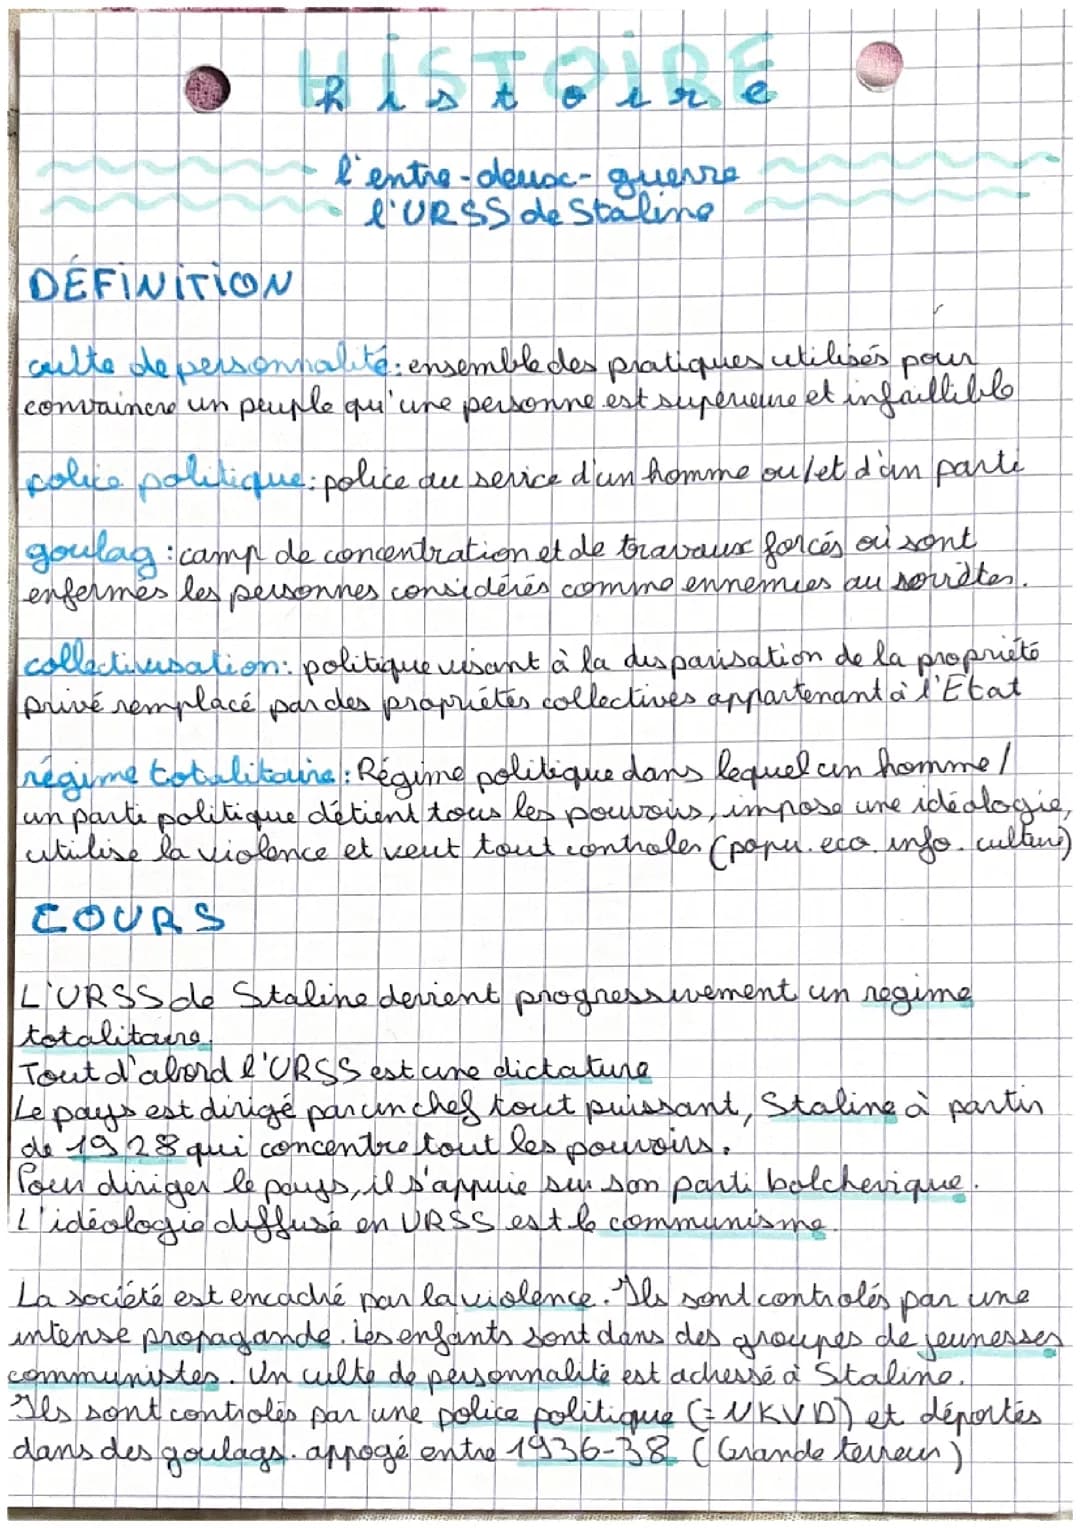 HISTOIRE
histoire
l'entre-deux-guerre
l'URSS de Staline
DÉFINITION
culte de personnalité: ensemble des pratiques utilisés pour
convaincre un peuple qu'une personne est supérieure et infaillible
police politique: police au service d'un homme ou/et d'un parti
goulag: camp de concentration et de travaux forcés où sont
enfermés les personnes considérés comme ennemies au soviètes.
collectivisation: politique visant à la disparisation de la propriété
privé remplacé par des propriétés collectives appartenant à l'État
régime totalitaire: Régime politique dans lequel un homme/
un parti politique détient tous les pouvoirs, impose une idéologie,
utilise la violence et veut tout controler (popu. eco. info. culture)
COURS
L'URSS de Staline devient progressivement un regime
totalitaire.
Tout d'abord l'URSS est une dictature
Le pays est dirigé par un chef tout puissant, Staline à partir
de 1928 qui concentre tout les pouvoirs.
Pour diriger le pays, il s'appuie sur son parti bolchevique.
L'idéologie diffusé en URSS est le communisme.
La société est encadré par la violence. Ils sont controlés par une
intense propagande. Les enfants sont dans des groupes de jeunesses
communistes. Un culte de personnalité est adressé à Staline.
Ils sont controlés par une police politique (= NKVD) et déportés
dans des goulags. appogé entre 1936-38 (Grande terreur)